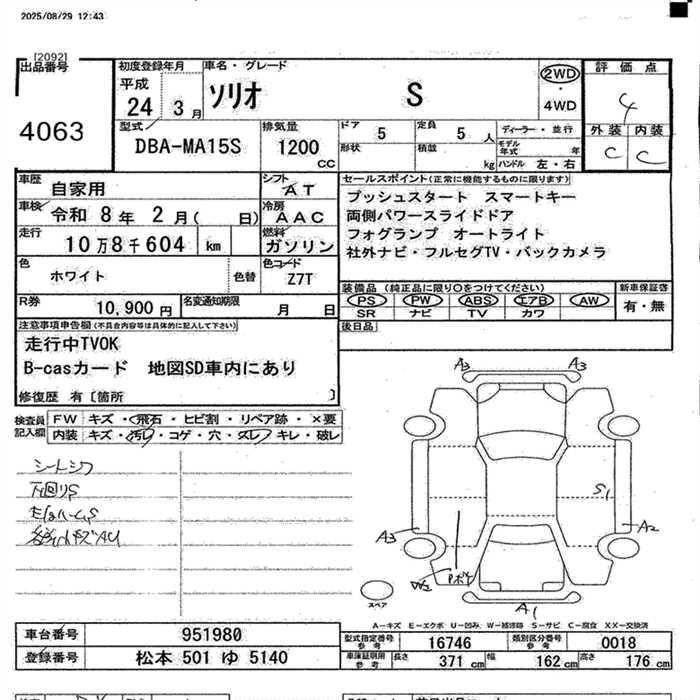 2025/08/29 12:43
[2092]
出品番号
4063
初度登録年月
平成
24 3 月
車名・グレード
ソリオ S
2WD
・
4WD
評価点
4
外装 内装
C C
型式
DBA-MA15S
排気量
1200 cc
ドア 5
形状
定員 5 人
積載 kg
ディーラー・並行
モデル年式 年
ハンドル 左・右
車歴
自家用
シフト
AT
車検
令和 8 年 2 月( 日)
冷房
AAC
走行
10万8千604 km
燃料
ガソリン
色
ホワイト
色替
色コード
Z7T
R券
10,900 円
名変通知期限
月 日
セールスポイント(正常に機能するものに限ります)
プッシュスタート スマートキー
両側パワースライドドア
フォグランプ オートライト
社外ナビ・フルセグTV・バックカメラ
装備品 (純正品に限り○をつけてください)
PS PW ABS エアB AW
SR ナビ TV カワ
新車保証書
有・無
後日品
注意事項申告欄(不具合内容等は具体的に記入して下さい)
走行中TVOK
B-casカード 地図SD車内にあり
修復歴 有〔箇所 〕
検査員
記入欄
FW キズ・飛石・ヒビ割・リペア跡・×要
内装 キズ・汚れ・コゲ・穴・スレ・キレ・破レ
シートシワ
下回りS
A3 A3
A3
S1
A2
W2
A1
スペア
A-キズ E-エクボ U-凹み W-補修跡 S-サビ C-腐食 XX-交換済
車台番号 951980
登録番号 松本 501 ゆ 5140
型式指定番号
参考
16746
類別区分番号
参考
0018
車庫証明用
参考
長さ 371 cm 幅 162 cm 高さ 176 cm